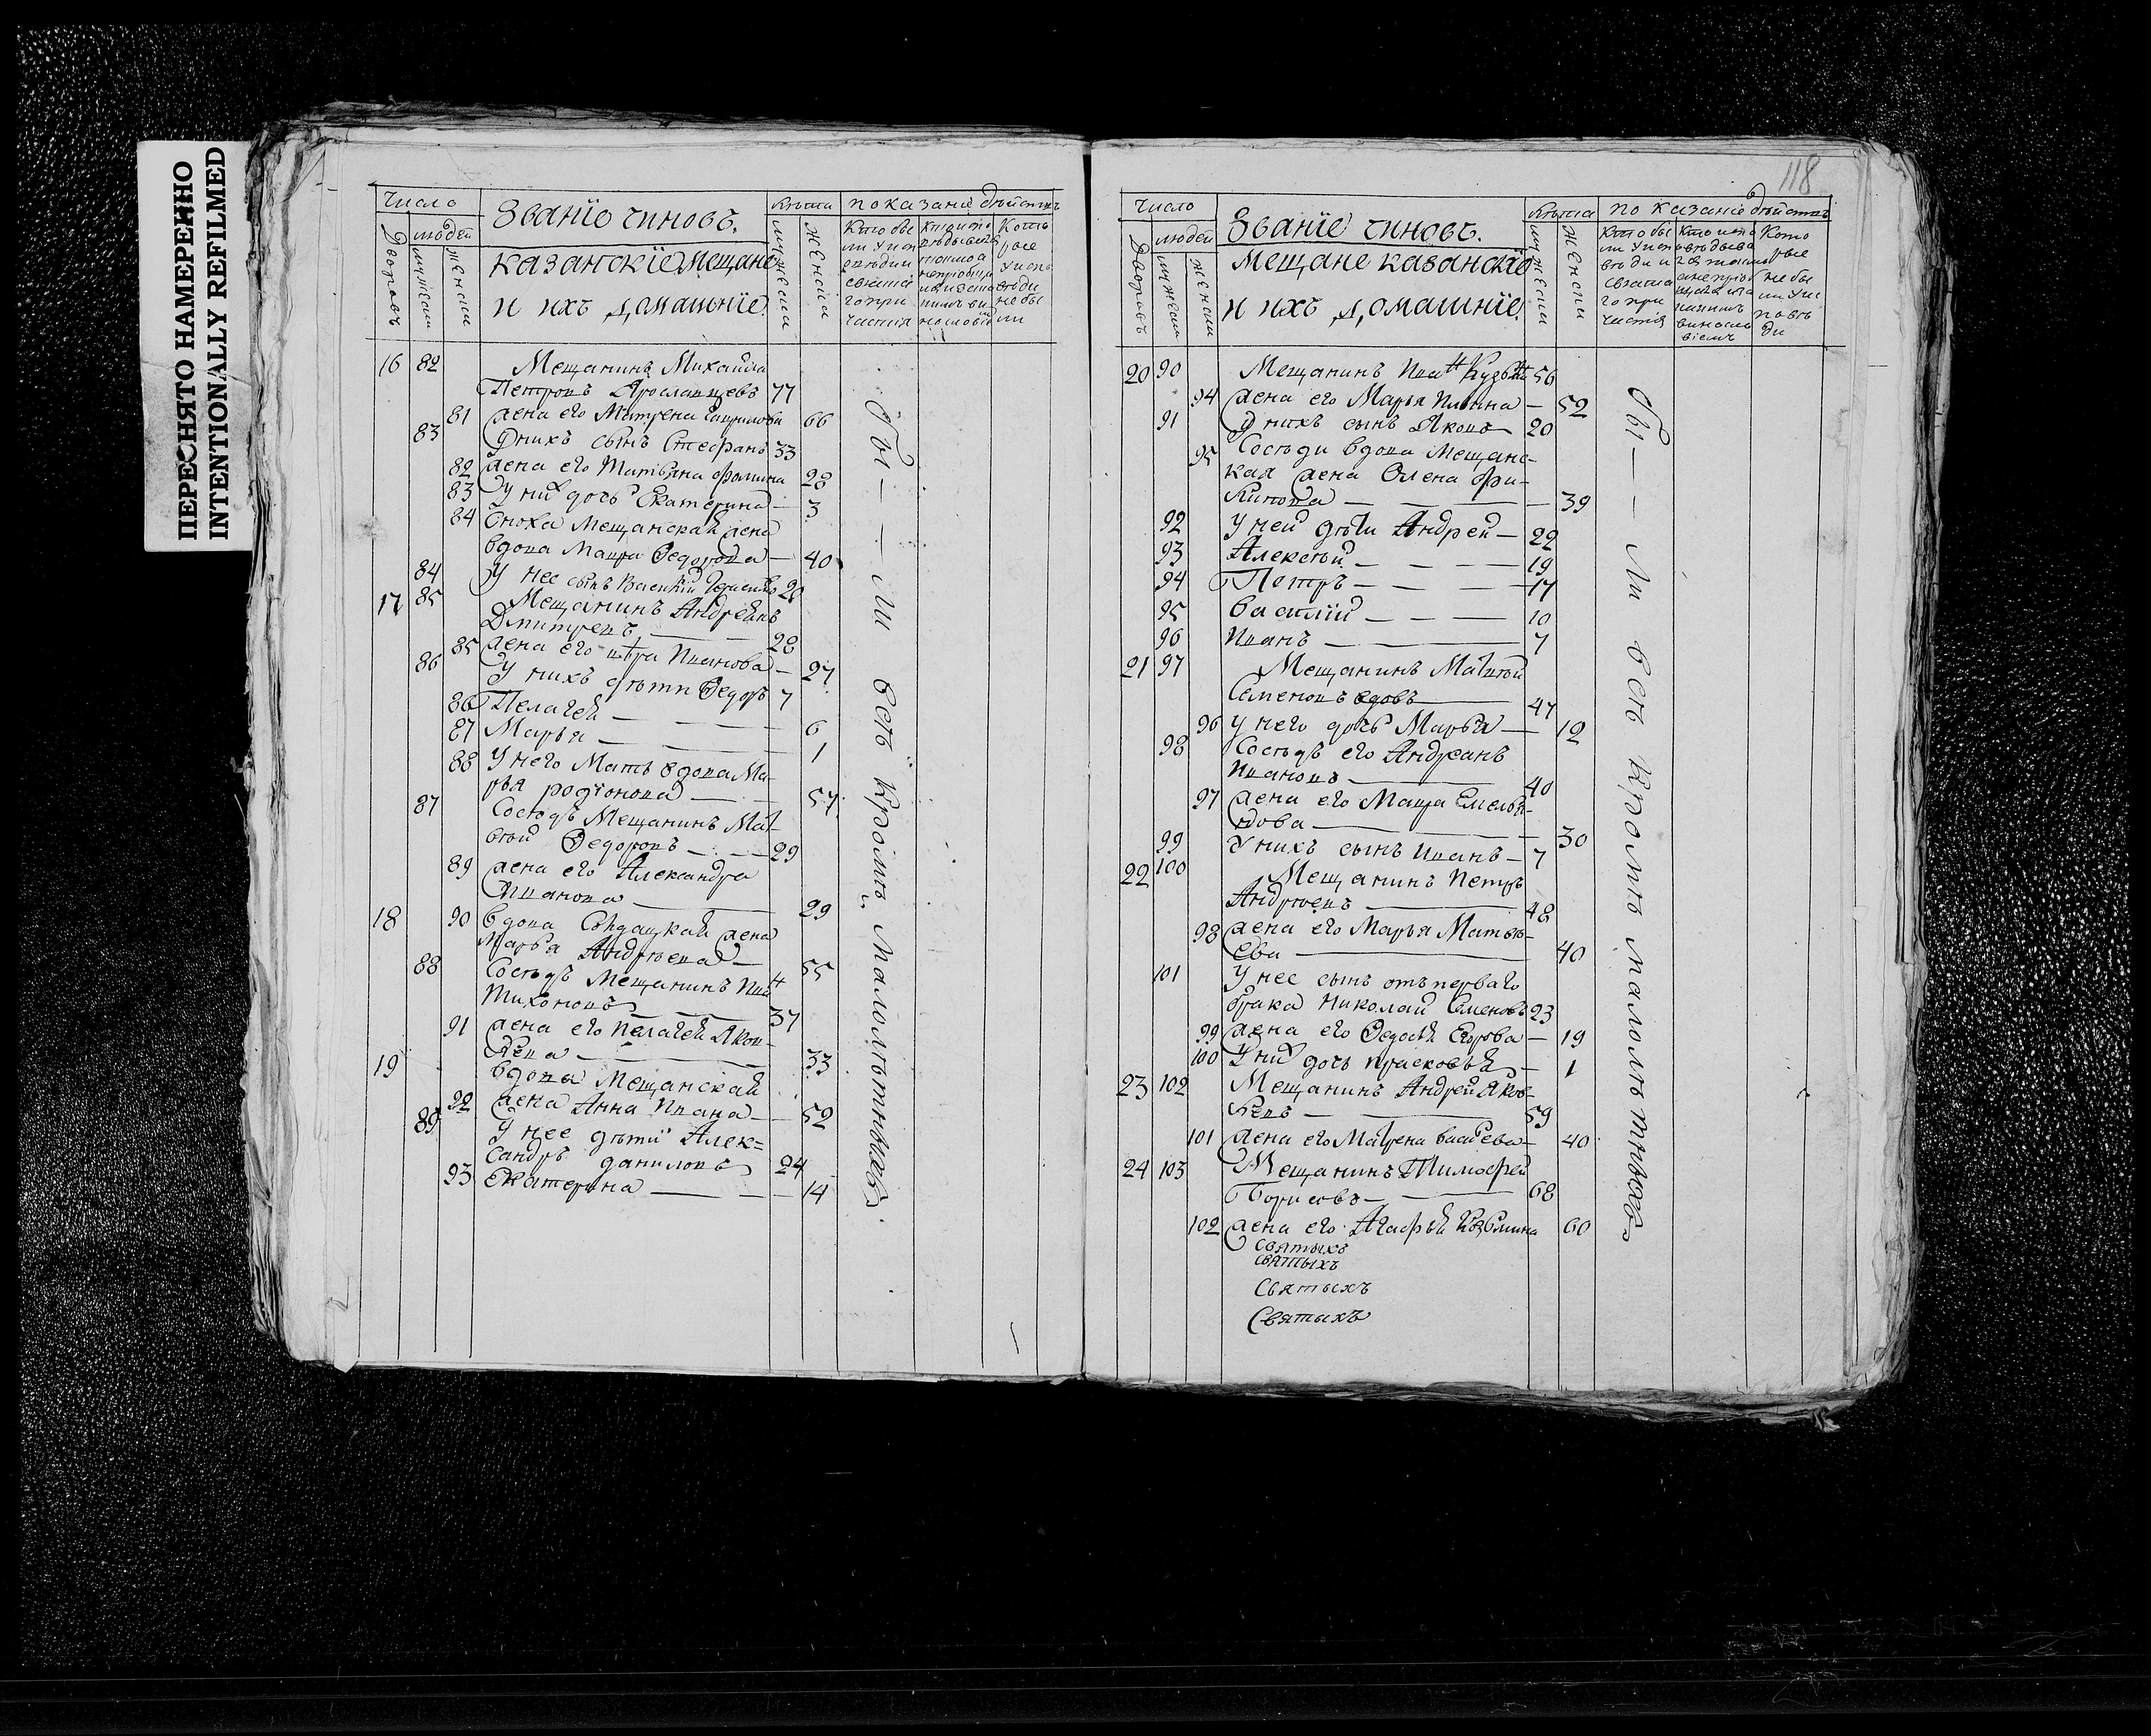 ПЕРЕСНЯТО НАМЕРЕННО
INTENTIONALLY REFILMED
Число
Званїе чиновъ.
Лѣта
показанїе дѣйства
Дворовъ
людей
мужеска
женска
казанскїе Мещане
и ихъ домашнїе
мужеска
женска
16 82 Мещанинъ Михайла
Петровъ Ярославцевъ 77
81 жена его Матрена Гаврилова 66
83 У нихъ сынъ Стефанъ 33
82 жена его Татьяна Фомина 28
83 У них дочь Екатерина — 3
84 Сноха Мещанская жена
вдова Мавра Федорова — 40
84 У нее сынъ Василий 20
17 85 Мещанинъ Андреянъ
Дмитревъ — 28
85 жена его Иванова — 27
86 У нихъ дѣти Федоръ 7
86 Пелагея — 6
87 Марья — 1
88 У него Мать вдова Ма-
рья родїонова — 57
87 Сосѣдъ Мещанинъ Мат-
вѣй Федоровъ — 29
89 жена его Александра
Иванова — 29
18 90 вдова Солдацкая жена
Марья Андрѣева — 55
88 Сосѣдъ Мещанинъ Иван
Тихоновъ — 37
91 жена его Пелагея Яков-
лева — 33
19 вдова Мещанская
92 жена Анна Ивана — 52
89 У нее дѣти Алек=
сандръ даниловъ 24
93 Екатерина — 14
Бы — — ли всѣ кромѣ малолѣтныхъ
118
Число
Званїе чиновъ.
Лѣта
показанїе дѣйства
Дворовъ
людей
мужеска
женска
Мещане казанскїе
и ихъ домашнїе
мужеска
женска
20 90 Мещанинъ Иван Кузьмин 56
94 жена его Марья Ильина — 52
91 У нихъ сынъ Яковъ 20
95 Сосѣди вдова Мещанс-
кая жена Олена Фи-
липова — 39
92 У ней дѣти Андрей — 22
93 Алексѣй — 19
94 Петръ — 17
95 Василїй — 10
96 Иванъ — 7
21 97 Мещанинъ Матвѣй
Семеновъ вдовъ — 47
96 У него дочь Марья — 12
98 Сосѣдъ его Андреанъ
Ивановъ — 40
97 жена его Мавра Емелья-
нова — 30
99 У нихъ сынъ Иванъ — 7
22 100 Мещанинъ Петръ
Андрѣевъ — 48
98 жена его Марья Матвѣ-
ева — 40
101 У нее сынъ отъ перваго
брака Николай Семеновъ 23
99 жена его Федосья Егорова — 19
100 У них дочь Прасковья — 1
23 102 Мещанинъ Андрей Яков-
левъ — 59
101 жена его Матрена Васильева — 40
24 103 Мещанинъ Тимофей
Борисовъ — 68
102 жена его Агафья Козмина 60
Святыхъ
Святыхъ
Святыхъ
Святыхъ
Бы — — ли всѣ кромѣ малолѣтныхъ